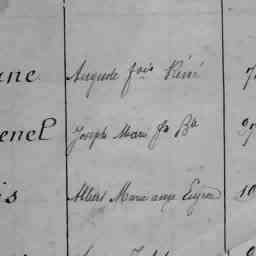 ine Auguste fois René 7
enel Joseph Marie fs Bte 9
is Albert Marie ange Eugène 10